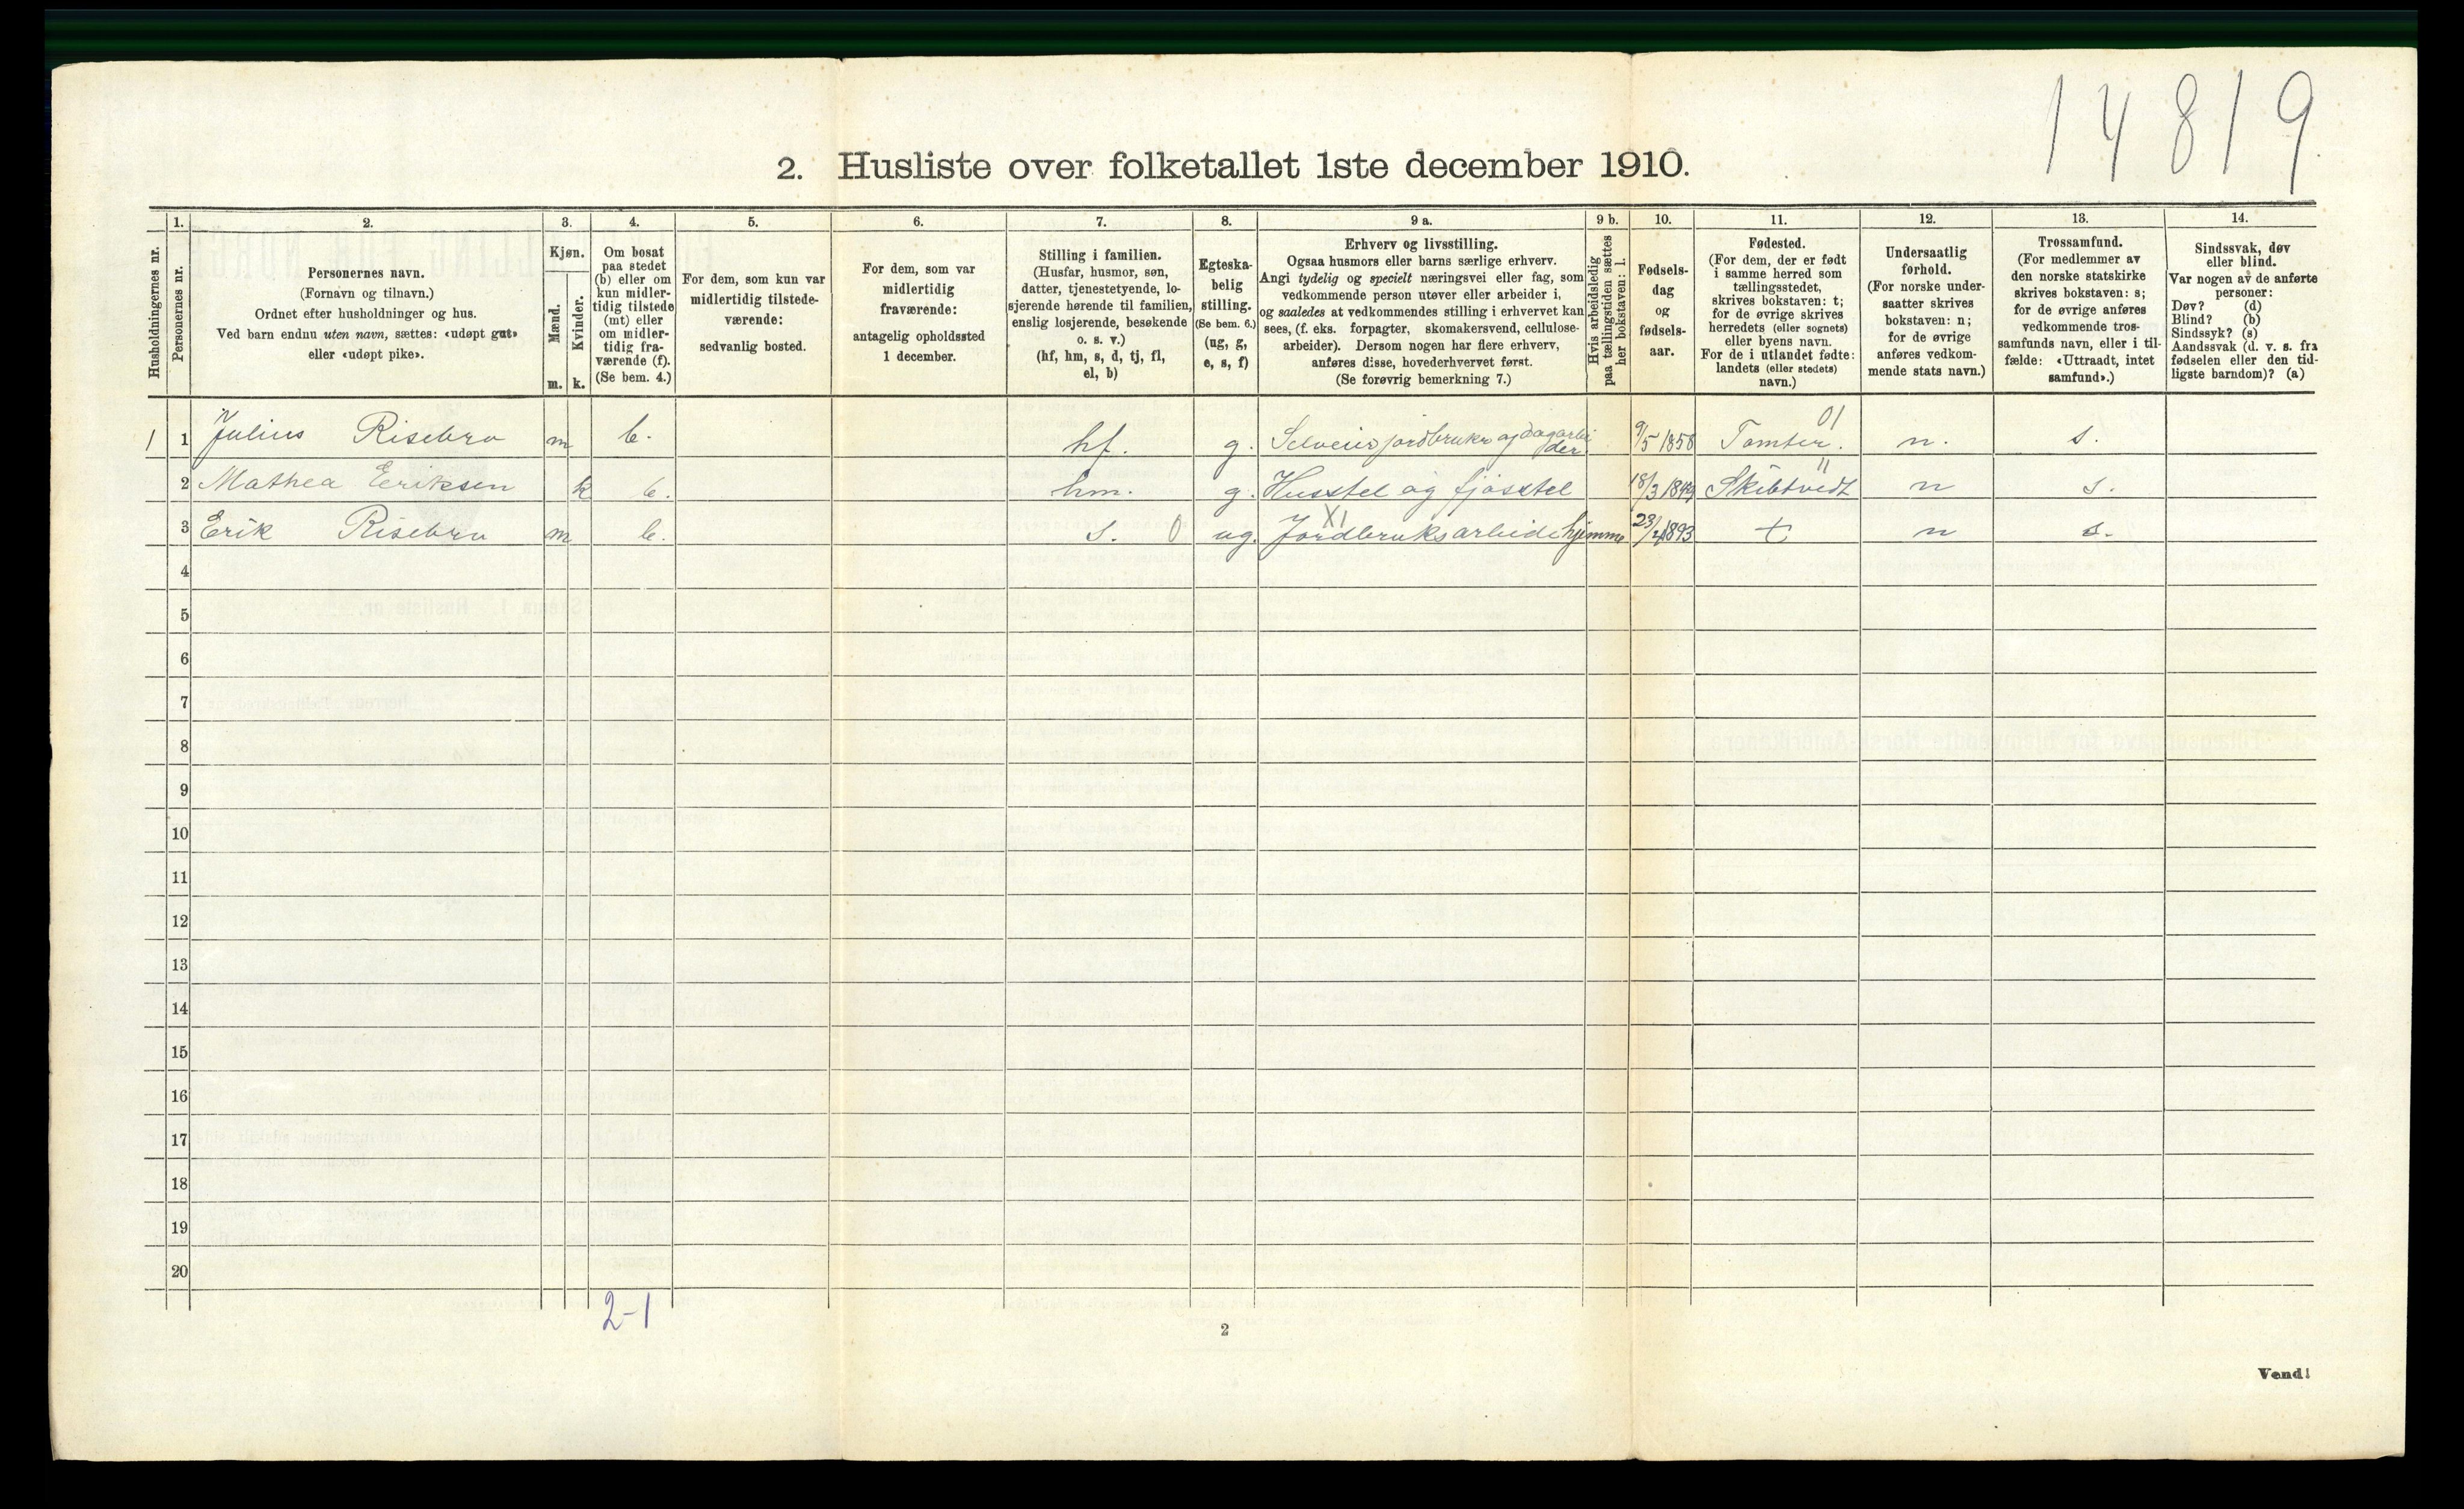 14819
2. Husliste over folketallet 1ste december 1910.
1. 2. 3. 4. 5. 6. 7. 8. 9 a. 9 b. 10. 11. 12. 13. 14.
Husholdningernes nr.
Personernes nr.
Personernes navn.
(Fornavn og tilnavn.)
Ordnet efter husholdninger og hus.
Ved barn endnu uten navn, sættes: «udøpt gut»
eller «udøpt pike».
Kjøn.
Mænd.
Kvinder.
m. k.
Om bosat
paa stedet
(b) eller om
kun midler-
tidig tilstede
(mt) eller
om midler-
tidig fra-
værende (f).
(Se bem. 4.)
For dem, som kun var
midlertidig tilstede-
værende:
sedvanlig bosted.
For dem, som var
midlertidig
fraværende:
antagelig opholdssted
1 december.
Stilling i familien.
(Husfar, husmor, søn,
datter, tjenestetyende, lo-
sjerende hørende til familien,
enslig losjerende, besøkende
o. s. v.)
(hf, hm, s, d, tj, fl,
el, b)
Egteska-
belig
stilling.
(Se bem. 6.)
(ug, g,
e, s, f)
Erhverv og livsstilling.
Ogsaa husmors eller barns særlige erhverv.
Angi tydelig og specielt næringsvei eller fag, som
vedkommende person utøver eller arbeider i,
og saaledes at vedkommendes stilling i erhvervet kan
sees, (f. eks. forpagter, skomakersvend, cellulose-
arbeider). Dersom nogen har flere erhverv,
anføres disse, hovederhvervet først.
(Se forøvrig bemerkning 7.)
Hvis arbeidsledig
paa tællingstiden sættes
her bokstaven: l.
Fødsels-
dag
og
fødsels-
aar.
Fødested.
(For dem, der er født
i samme herred som
tællingsstedet,
skrives bokstaven: t;
for de øvrige skrives
herredets (eller sognets)
eller byens navn.
For de i utlandet fødte:
landets (eller stedets)
navn.)
Undersaatlig
forhold.
(For norske under-
saatter skrives
bokstaven: n;
for de øvrige
anføres vedkom-
mende stats navn.)
Trossamfund.
(For medlemmer av
den norske statskirke
skrives bokstaven: s;
for de øvrige anføres
vedkommende tros-
samfunds navn, eller i til-
fælde: «Uttraadt, intet
samfund».)
Sindssvak, døv
eller blind.
Var nogen av de anførte
personer:
Døv? (d)
Blind? (b)
Sindssyk? (s)
Aandssvak (d. v. s. fra
fødselen eller den tid-
ligste barndom)? (a)
1 1 Julius Risebro m b. hf. g. Selveier jordbruker og dagarbei der 9/5 1858 Tomter. 01 n. s.
2 Mathea Eriksen k b. hm. g. Husstel og fjøsstel 18/3 1849 Skibtvedt 11 n s.
3 Erik Risebro m b. s. 0 ug. XI Jordbruksarbeide hjemme 23/4 1893 t n s.
4
5
6
7
8
9
10
11
12
13
14
15
16
17
18
19
20
2-1
2
Vend!